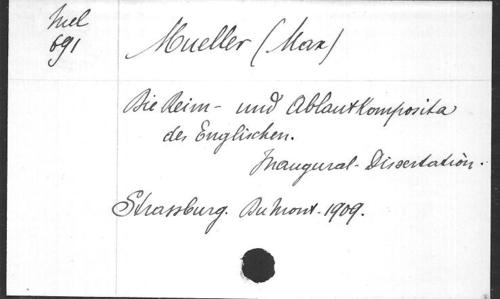 Mel
691
Mueller (Max)
Die Reim- und Ablautkomposita
des Englischen.
Inaugural-Dissertation.
Strassburg. DuMont. 1909.